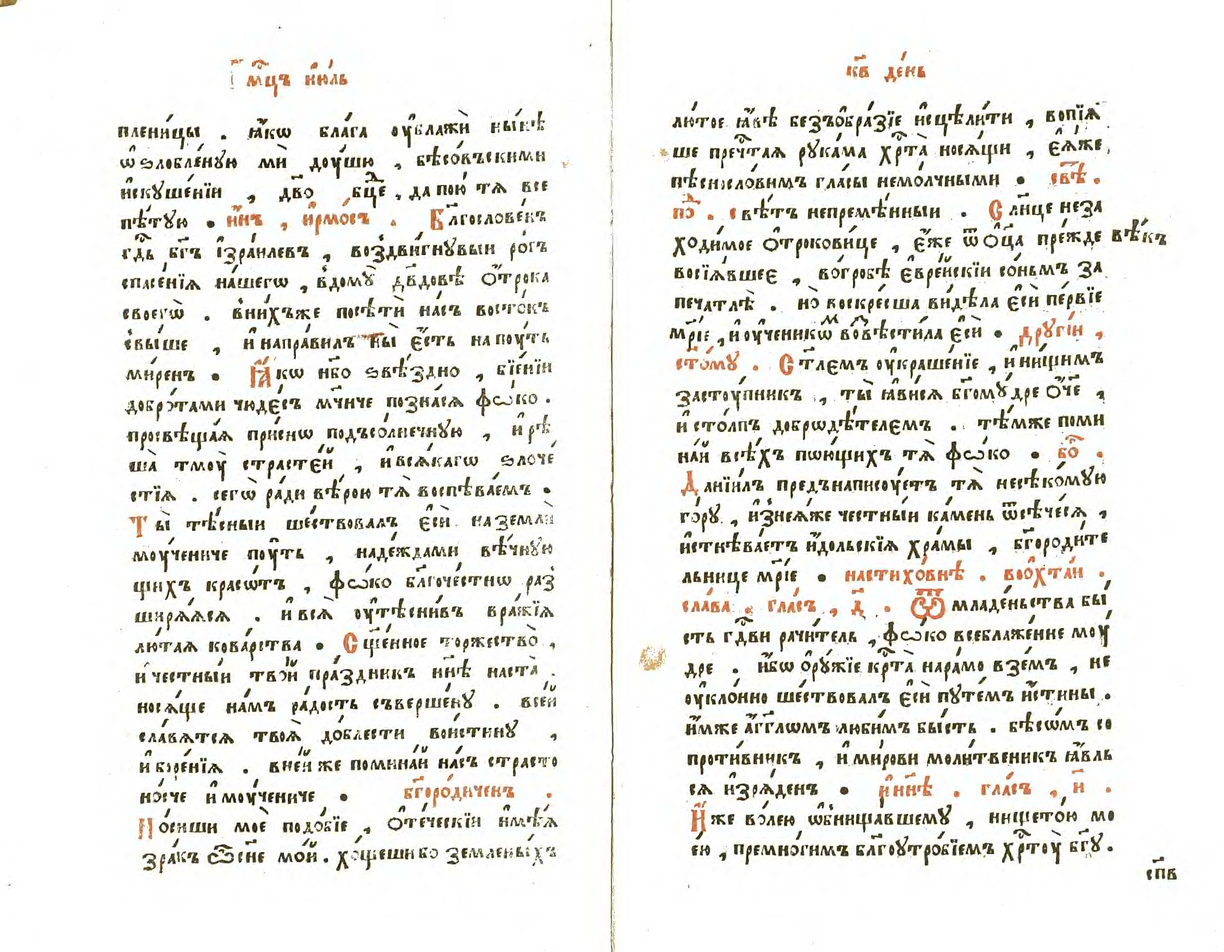 мц҃ъ і҆ю́ль
плени́цы . ꙗ҆́кѡ бла́га ᲂу҆блажѝ ны́нѣ
ѡ҆ѕло́бле́нꙋю мѝ дꙋ́шю , бѣсо́въскими
и҆скꙋше́нїи , дв҃о бц҃е , да пою̀ тѧ̀ все
пѣ́тꙋю . и҆́нъ , і҆рмо́съ . Бл҃гослове́нъ
гдⷭ҇ь бг҃ъ і҆зра́илевъ , воздви́гнꙋвыи ро́гъ
спасе́нїѧ на́шегѡ , в̾домꙋ̀ дв҃довѣ ѻ҆́трока
своегѡ̀ . в̾ни́хъже посѣтѝ на́съ восто́къ
свы́ше , и҆ напра́вилъ ны̀ є҆́сть на пꙋ́ть
ми́ренъ . Ꙗ҆́кѡ не́бо ѕвѣ́здно , бїе́нїи
добро́тами чюде́съ мч҃нче позна́сѧ фѡ́ко .
просвѣща́ѧ при́снѡ подъсо́лнечнꙋю , и҆ рѣ
ша̀ тмꙋ̀ страсте́й , и҆ всѧ́кагѡ ѕлоче
стїѧ . сегѡ̀ ра́ди вѣ́рою тѧ̀ воспѣва́емъ .
Ты̀ тѣ́сныи ше́ствовалъ є҆сѝ на землѝ
мꙋ́чениче пꙋ́ть , наде́ждами вѣ́чнꙋю
щихъ красо́тъ , фѡ́ко бл҃гоче́стнѡ раз̾
ширѧ́ѧсѧ . и҆ всѧ̀ ᲂу҆тѣсни́въ вра́жїѧ
лю́таѧ кова́рства . Сщ҃е́нное торжество̀ ,
и҆ че́стныи тво́й пра́здникъ нн҃ѣ наста̀ .
носѧ́ще на́мъ ра́дость съверше́нꙋ . все́й
сла́вѧтсѧ твоѧ̀ до́блести вои́стинꙋ ,
и҆ боре́нїѧ . в̾не́й же помина́й на́съ страсто
но́сче и҆ мꙋ́чениче . бг҃оро́диченъ .
Но́сиши моѐ подо́бїе , ѻ҆те́ческїи и҆мѣ́ѧ
зра́къ сп҃се мо́й . хо́щеши бо земле́ныхъ
кв҃ де́нь
лю́тое ꙗ҆́вѣ безъѻбра́зїе и҆сцѣли́ти , вопїѧ̀
ше преч҃таѧ рꙋка́ма хрⷭ҇та̀ носѧ́щи , є҆ѧ́же ,
пѣсносло́вимъ гла́сы немо́лчными . свѣ .
по . свѣ́тъ непремѣ́нныи . Со́лнце неза
ходи́мое ѻ҆трокови́це , є҆́же ѿ ѻ҆ц҃а̀ пре́жде вѣ́къ
восїѧ́вшее , во гро́бѣ є҆вре́йскїи со́ньмъ за
печатлѣ̀ . но̀ воскре́сша ви́дѣла є҆сѝ пе́рвїе
мр҃і́е , и҆ ᲂу҆ченикѡ́мъ во́звѣстила є҆сѝ . дрꙋгі́и ,
ст҃о́мꙋ . Ст҃лемъ ᲂу҆краше́нїе , и҆ ни́щимъ
застꙋ́пникъ , ты̀ ꙗ҆ви́сѧ бг҃омꙋ́дре ѻ҆́ч҃е ,
и҆ сто́лпъ добродѣ́телемъ . тѣ́мже поми
на́й всѣ́хъ пою́щихъ тѧ̀ фѡ́ко . бо .
Данїи́лъ предънаписꙋ́етъ тѧ̀ несѣко́мꙋю
го́рꙋ , и҆знеѧ́же честны́й ка́мень ѿсѣче́сѧ ,
и҆стнѣва́етъ и҆́дольскїѧ хра́мы , бг҃ороди́те
льнице мр҃і́е . на стихо́внѣ . во ѻ҆хта́и .
сла́ва . гла́съ , д҃ . Ѿ младе́ньства бы́
сть гдⷭ҇ви рачи́тель , фѡ́ко всеблаже́нне мꙋ́
дре . и҆́бо ѻ҆рꙋ́жїе крⷭ҇та̀ на ра́мо взе́мъ , не
ᲂу҆кло́нно ше́ствовалъ є҆сѝ пꙋте́мъ и҆́стины .
и҆́мже а҆́гг҃лѡмъ люби́мъ бы́сть . бѣсѡ́мъ со
проти́вникъ , и҆ ми́рови моли́твеникъ ꙗ҆́вль
сѧ и҆зрѧ́денъ . и҆ нн҃ѣ . гла́съ , и҃ .
И҆́же во́лею ѡ҆бнища́вшемꙋ , нището́ю мо
є́ю , премно́гимъ бл҃гоꙋтро́бїемъ хрⷭ҇тꙋ̀ бг҃ꙋ .
сп҃в